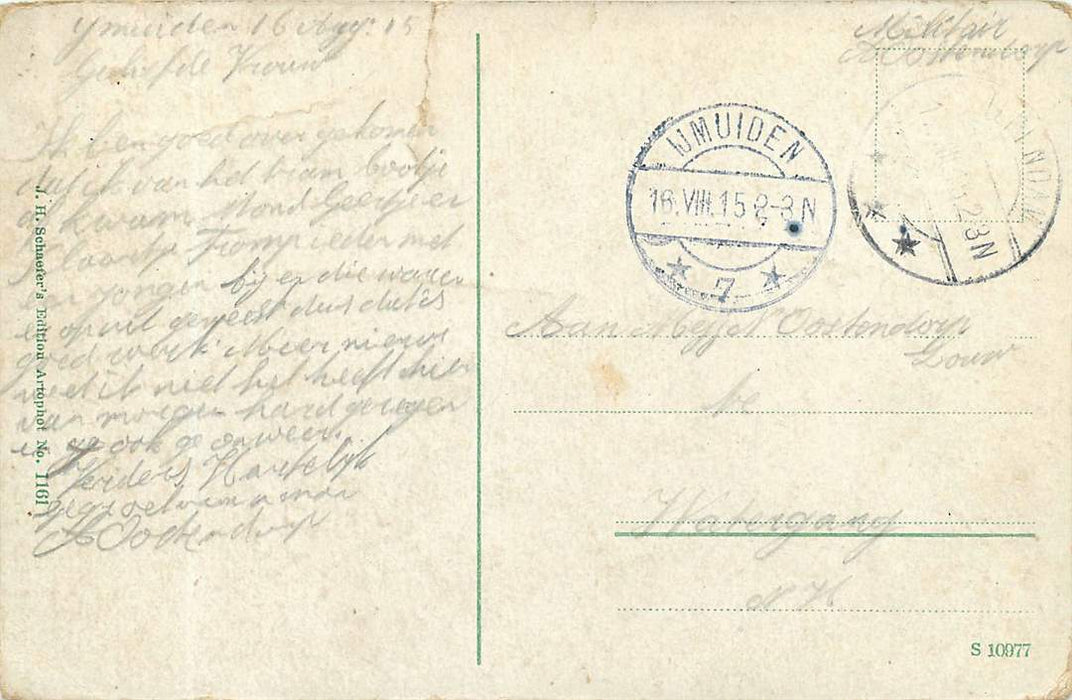 Ymuiden 16 Aug. 15
Geliefde Vrouw
Ik ben goed over gekomen
dat ik van het tram bootje
af kwam stond
Klaartje Tromp
en jongen bij er die waren
er op uit geweest dus dat is
goed werk Meer nieuws
weet ik niet het heeft hier
van morgen hard geregen
en ook ge onweer.
Verders Hartelijk
gegroet van u man
Oostendorp
J. H. Schaefer's Edition Artophot No. 1161
Militair
Oostendorp
IJMUIDEN
16.VIII.15 2-3N
7
2-3N
Aan Mej N Oostendorp
Gouw
Watergang
N H
S 10977